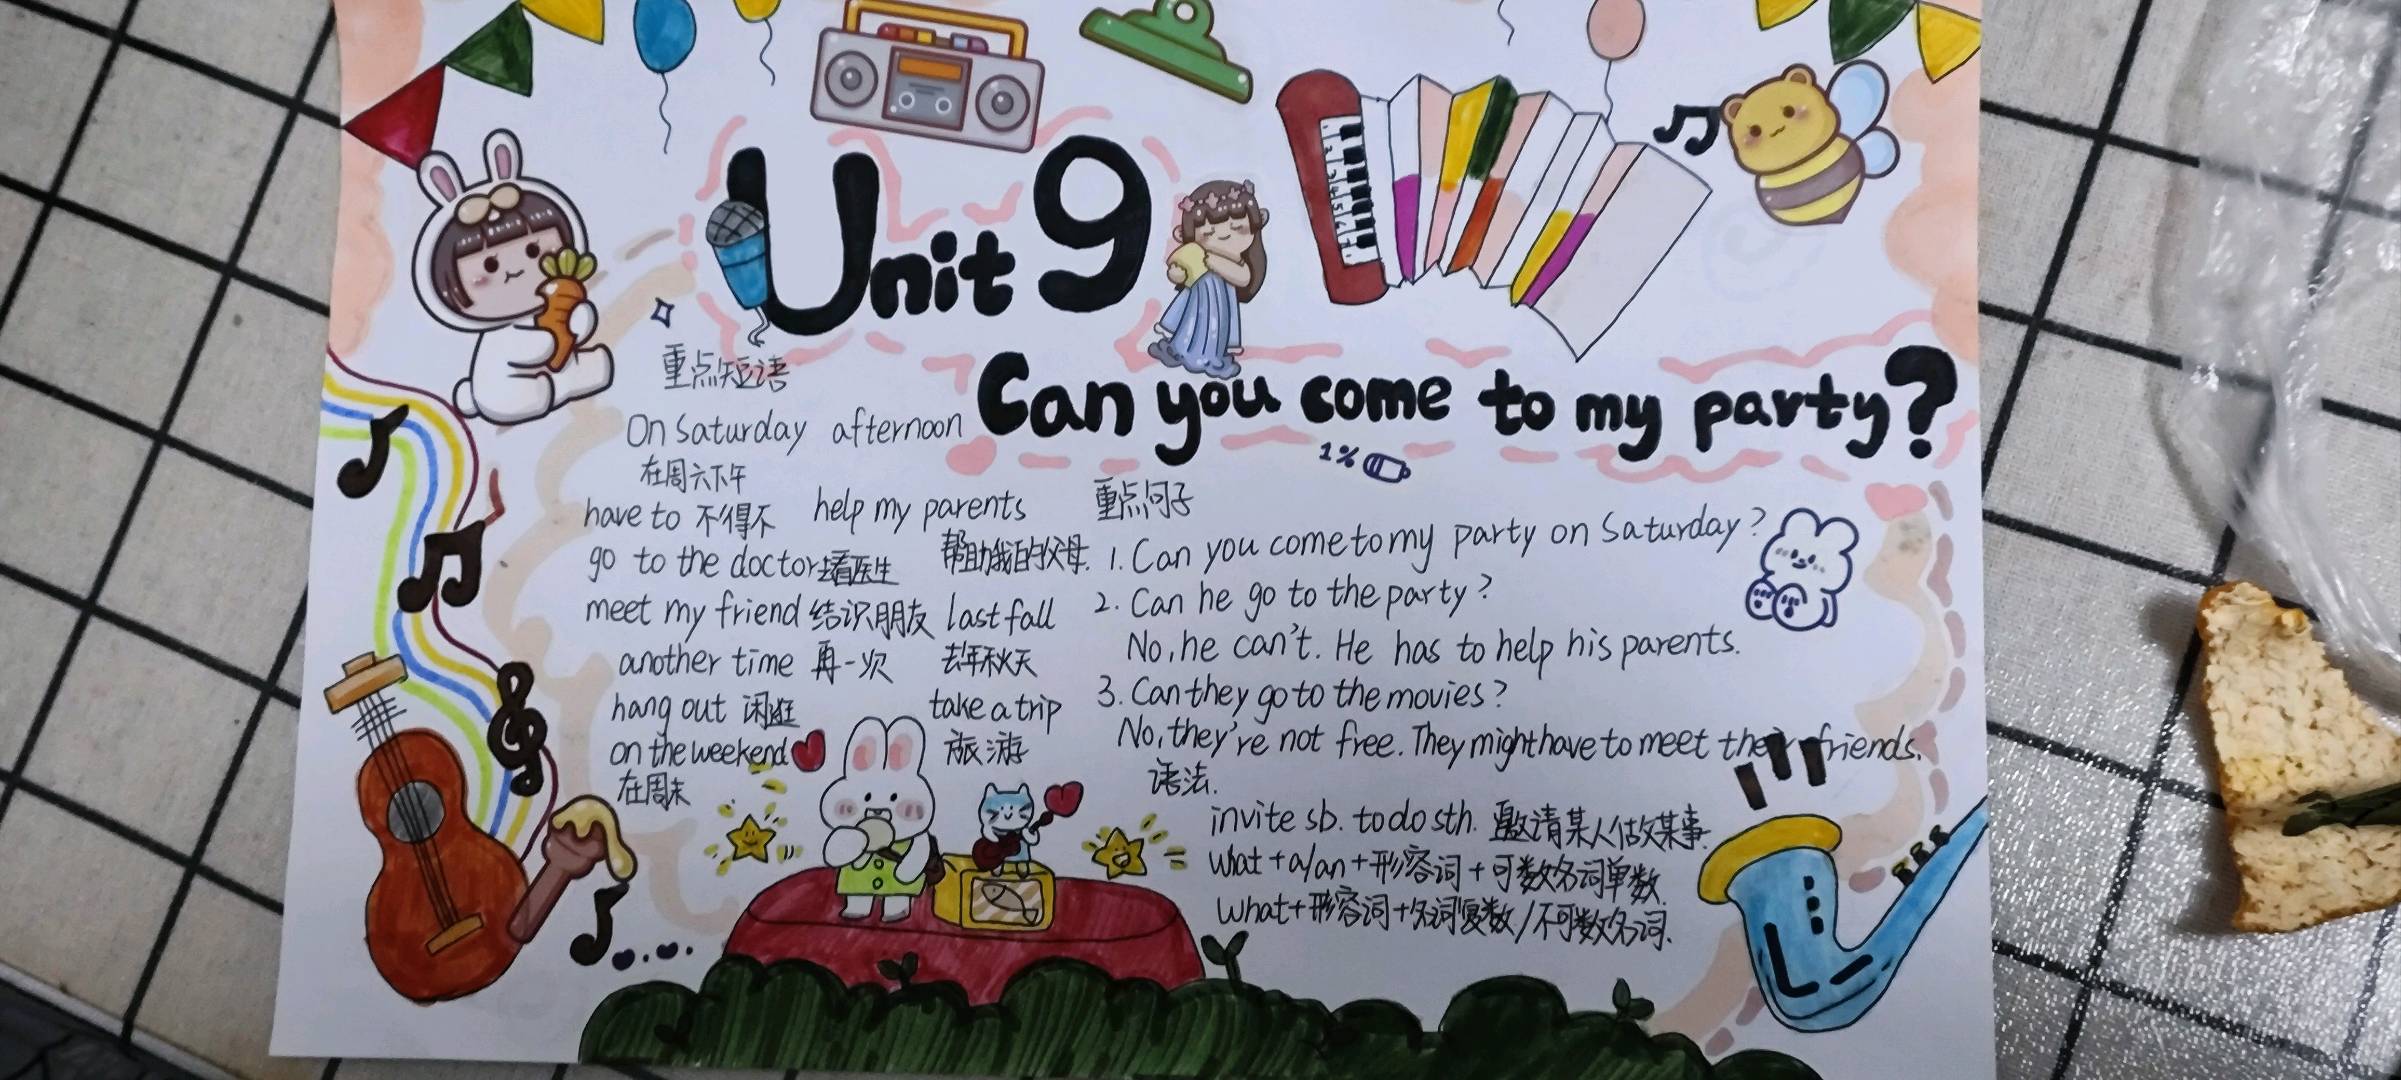 Unit 9
Can you come to my party?
1%
重点短语
On Saturday afternoon
在周六下午
have to 不得不
help my parents
帮助我的父母.
go to the doctor 看医生
meet my friend 结识朋友
last fall
去年秋天
another time 再一次
hang out 闲逛
take a trip
旅游
on the weekend
在周末
重点句子
1. Can you come to my party on Saturday?
2. Can he go to the party?
No, he can't. He has to help his parents.
3. Can they go to the movies?
No, they're not free. They might have to meet their friends.
语法.
invite sb. to do sth. 邀请某人做某事.
what + a/an + 形容词 + 可数名词单数.
what + 形容词 + 名词复数/不可数名词.